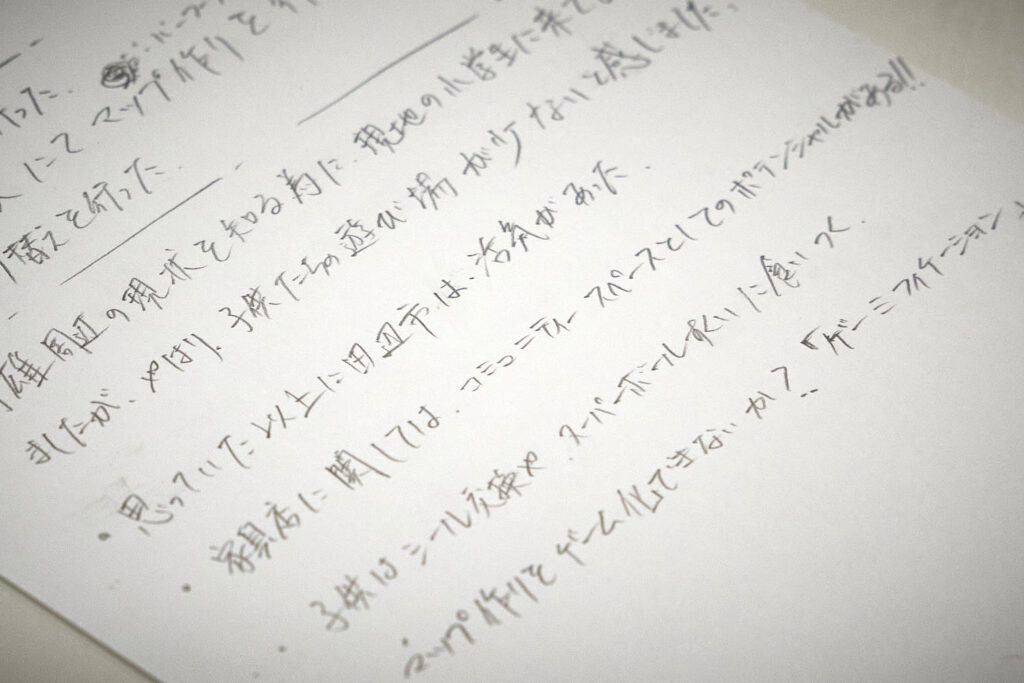 った. スーパーボール
にて マップ作り を行
替えを行った.
周辺の現状を知る為に、現地の小学生に来て
ましたが、やはり、子供たちの遊び場が少ないと感じました、
・思っていた以上に田辺市は、活気があった.
・家具店に関しては、コミュニティースペースとしてのポテンシャルがある!!
・子供はシール交換や、スーパーボールすくいに食いつく.
・マップ作りをゲーム化できないか?..「ゲーミフィケーション